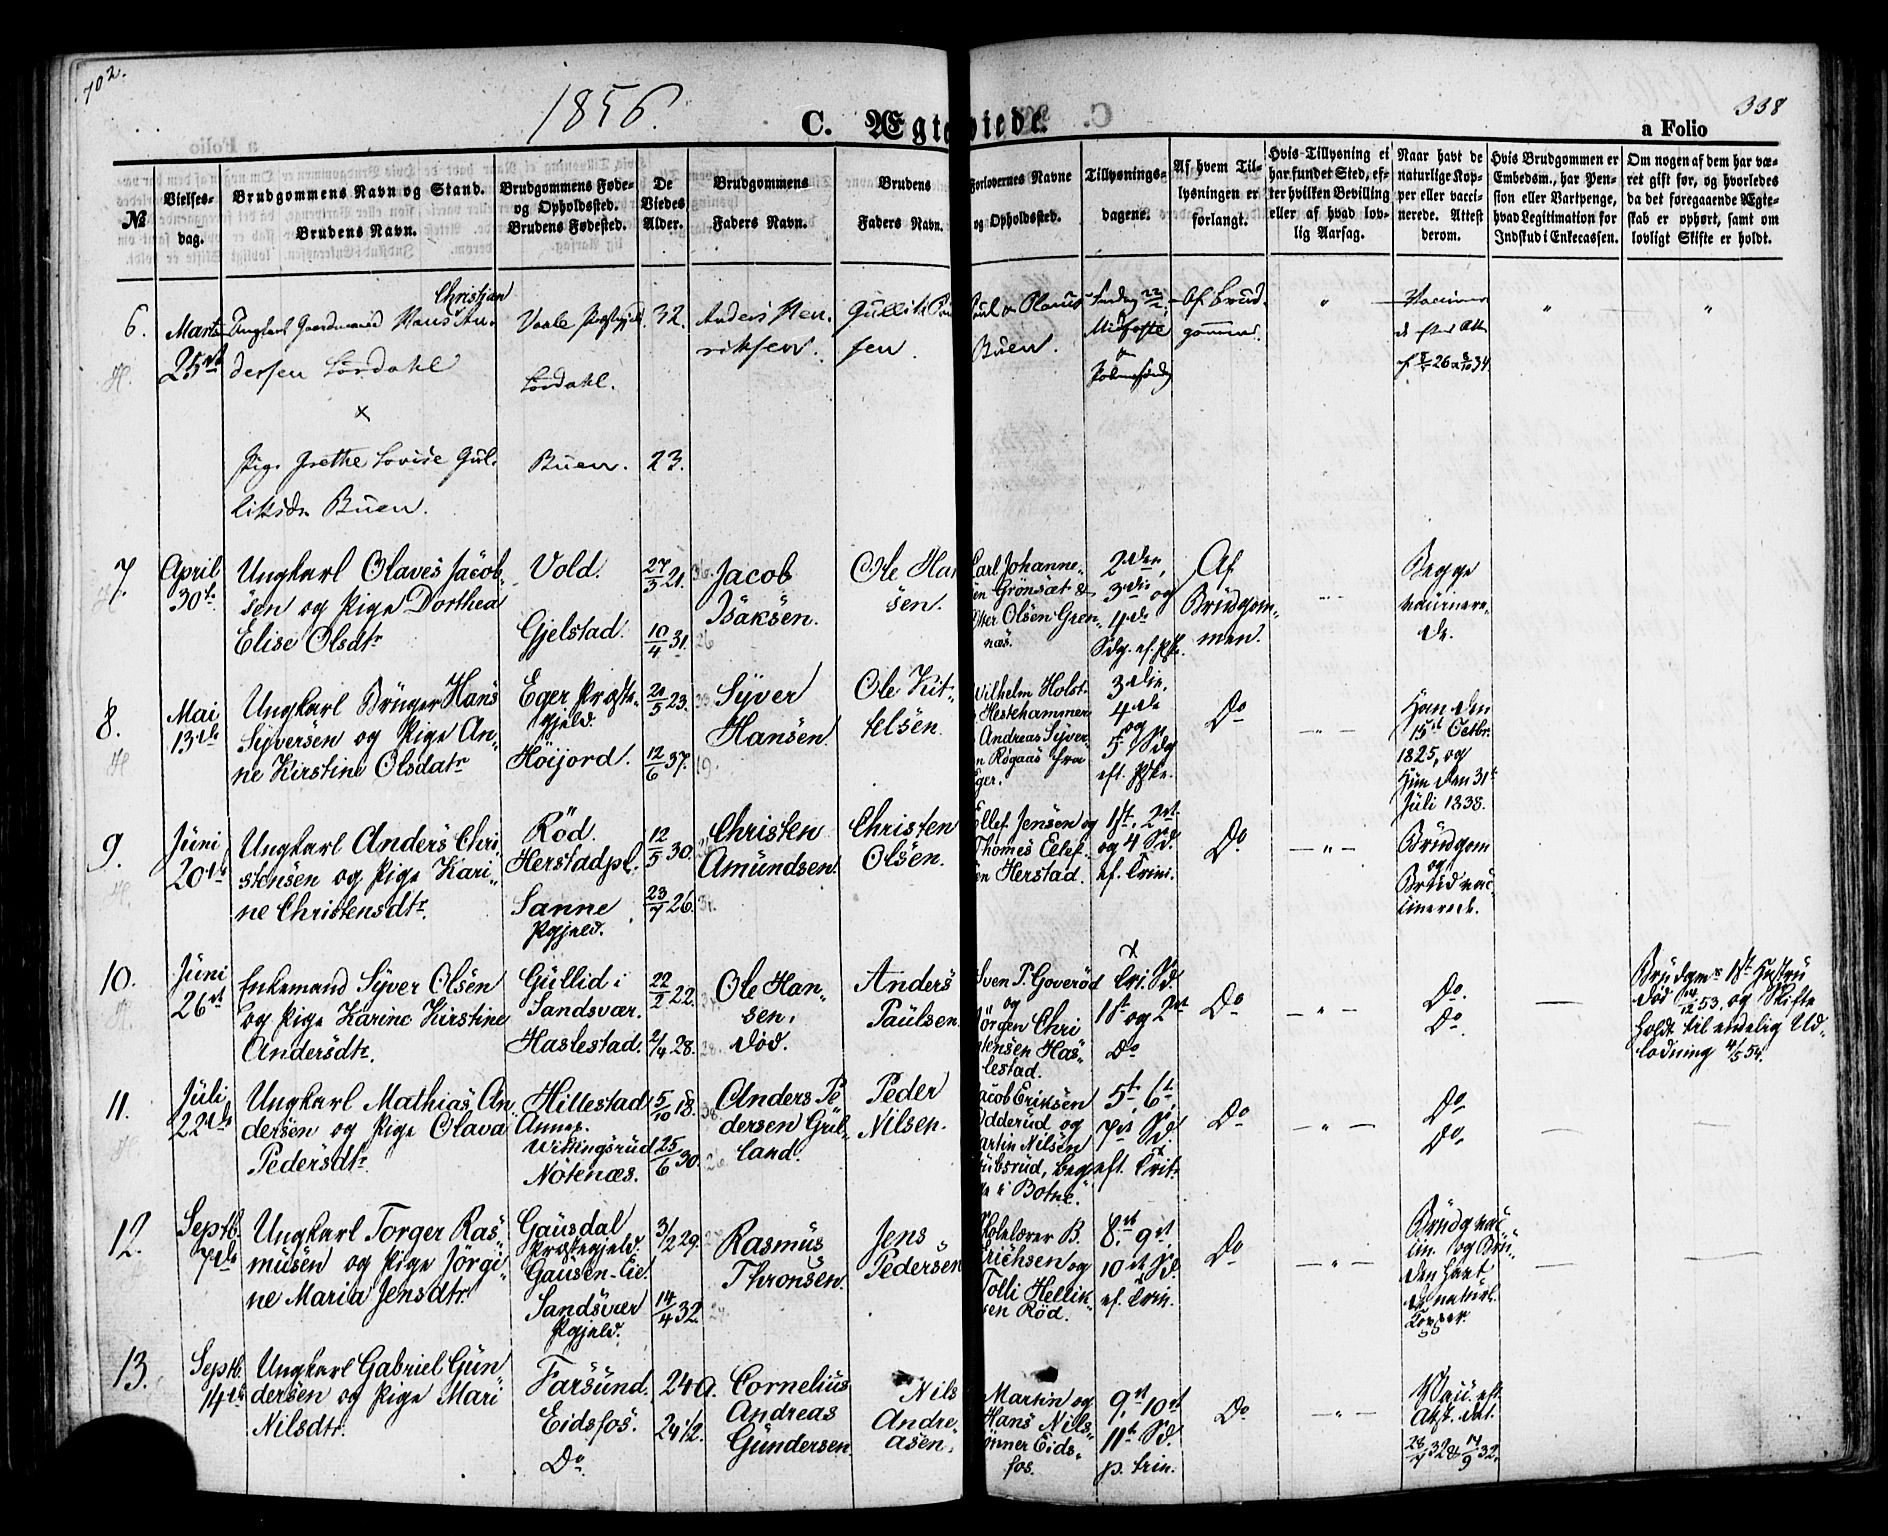 702.
1856.
C. Ægteviede.
338
a Folio
№
Vielses-
dag.
Brudgommens Navn og Stand.
Brudens Navn.
Brudgommens Føde-
og Opholdssted.
Brudens Fødested.
De
Viedes
Alder.
Brudgommens
Faders Navn.
Brudens
Faders Navn.
Forlovernes Navne
og Opholdssted.
Tillysnings-
dagene.
Af hvem Til-
lysningen er
forlangt.
Hvis Tillysning ei
har fundet Sted, ef-
ter hvilken Bevilling
eller af hvad lov-
lig Aarsag.
Naar havt de
naturlige Kop-
per eller vacci-
nerede. Attest
derom.
Hvis Brudgommen er
Embedsm., har Pen-
sion eller Vartpenge,
hvad Legitimation for
Indskud i Enkecassen.
Om nogen af dem har væ-
ret gift før, og hvorledes
da det foregaaende Ægte-
skab er ophørt, samt om
lovligt Skifte er holdt.
6.
Marts
25de
Christian
Ungkarl Gaardmand Hans An-
dersen Lördahl
x
Pige Grethe Lovise Gul-
liksdr Buen.
Vaale Præstegjeld
Lördahl.
Buen.
32.
23.
Anders Hen-
riksen.
Gullik Poul-
sen.
Poul & Olaus
Buen.
Søndag 22/2
Midfaste
&
Palmesøndag
Af Brud-
gommen.
"
Vaccinered
efter Att.
"
"
7.
April
30te
Ungkarl Olaves Jacob-
sen og Pige Dorthea
Elise Olsdtr
Vold.
Gjelstad.
27/3 21.
10/4 31.
Jacob
Isaksen.
Ole Han
sen.
Carl Johanne-
sen Grönsæt &
Peter Olsen Gren-
næs.
2den,
3die og
4de
Sdg. ef. Pske.
Af
Brudgom-
men.
Begge
vaccinere-
de.
8.
Mai
13de
Ungkarl Brüger Hans
Syversen og Pige An-
ne Kirstine Olsdatr
Eger Præste-
gjeld.
Höijord.
20/5 23.
12/6 37.
Syver
Hansen.
Ole Kit-
telsen.
Wilhelm Holst
Hestehammer
& Andreas Syver-
sen Røgaas fra
Eger.
3die,
4de
og
5te Sdg
eft. Pske.
Do
Han den
15de Octbr.
1825, og
Hun den 31te
Juli 1838.
9.
Juni
20de
Ungkarl Anders Chri-
stensen og Pige Kari-
ne Christensdtr.
Röd.
Herstadpl.
Sanne
Pgjeld.
12/5 30.
23/7 26.
Christen
Amundsen.
Christen
Olsen.
Ellef Jensen og
Thomes Ellef-
sen Herstad.
1ste, 2den
og 4 Sd.
ef. Trini.
Do
Brudgom
og
Brud vac-
cinerede.
10.
Juni
26de
Enkemand Syver Olsen
og Pige Karine Kirstine
Andersdtr.
Gullid i
Sandsvær.
Haslestad.
22/2 22.
2/4 28.
Ole Han-
sen.
død.
Anders
Paulsen.
Sven P. Goverød
og
Jörgen Chri
stensen Has-
lestad.
Tri. Sd.
1ste og 2den
Do
Do
Do.
Do.
Brudgms 1ste Hustru
død 53, og Skifte
holdt til endelig Ud-
lodning 4/5 54.
11.
Juli
22de
Ungkarl Mathias An-
dersen og Pige Olava
Pedersdtr.
Hillestad
Annex.
Wittingsrud
Nötenæs.
5/10 18.
25/6 30.
Anders Pe
dersen Gul-
land.
Peder
Nilsen.
Jacob Eriksen
Odderud og
Martin Nilsen
Gubsrud, beg-
ge i Botne.
5te, 6te,
7de Sd.
eft. Trit.
Do
Do
Do.
12.
Septb.
7de
Ungkarl Torger Ras-
musen og Pige Jörgi-
ne Maria Jensdtr.
Gausdal
Præstegjeld.
Gausen-Eie.
Sandsvær
Pgjeld.
3/2 29.
14/4 32.
Rasmus
Thronsen.
Jens
Pedersen
Skolelærer B.
Erichsen og
Tolli Hellik-
sen Röd.
8de, 9de,
10de Sd.
ef. Trin.
Do
Brudg. vac-
cin. og Bru-
den havt
de naturl.
Kopper.
13.
Septb.
14de
Ungkarl Gabriel Gun-
dersen og Pige Mari
Nilsdtr.
Farsund.
Eidsfos.
Do.
24 a.
24 1/2.
Cornelius
Andreas
Gundersen
Nils
Andre-
asen.
Martin og
Hans Nils-
sønner Eids-
fos.
9de, 10de
11te Sd.
p. Trin.
Do
Vacc. eft.
Atst. dat.
28/7 32 & 14/9 32.